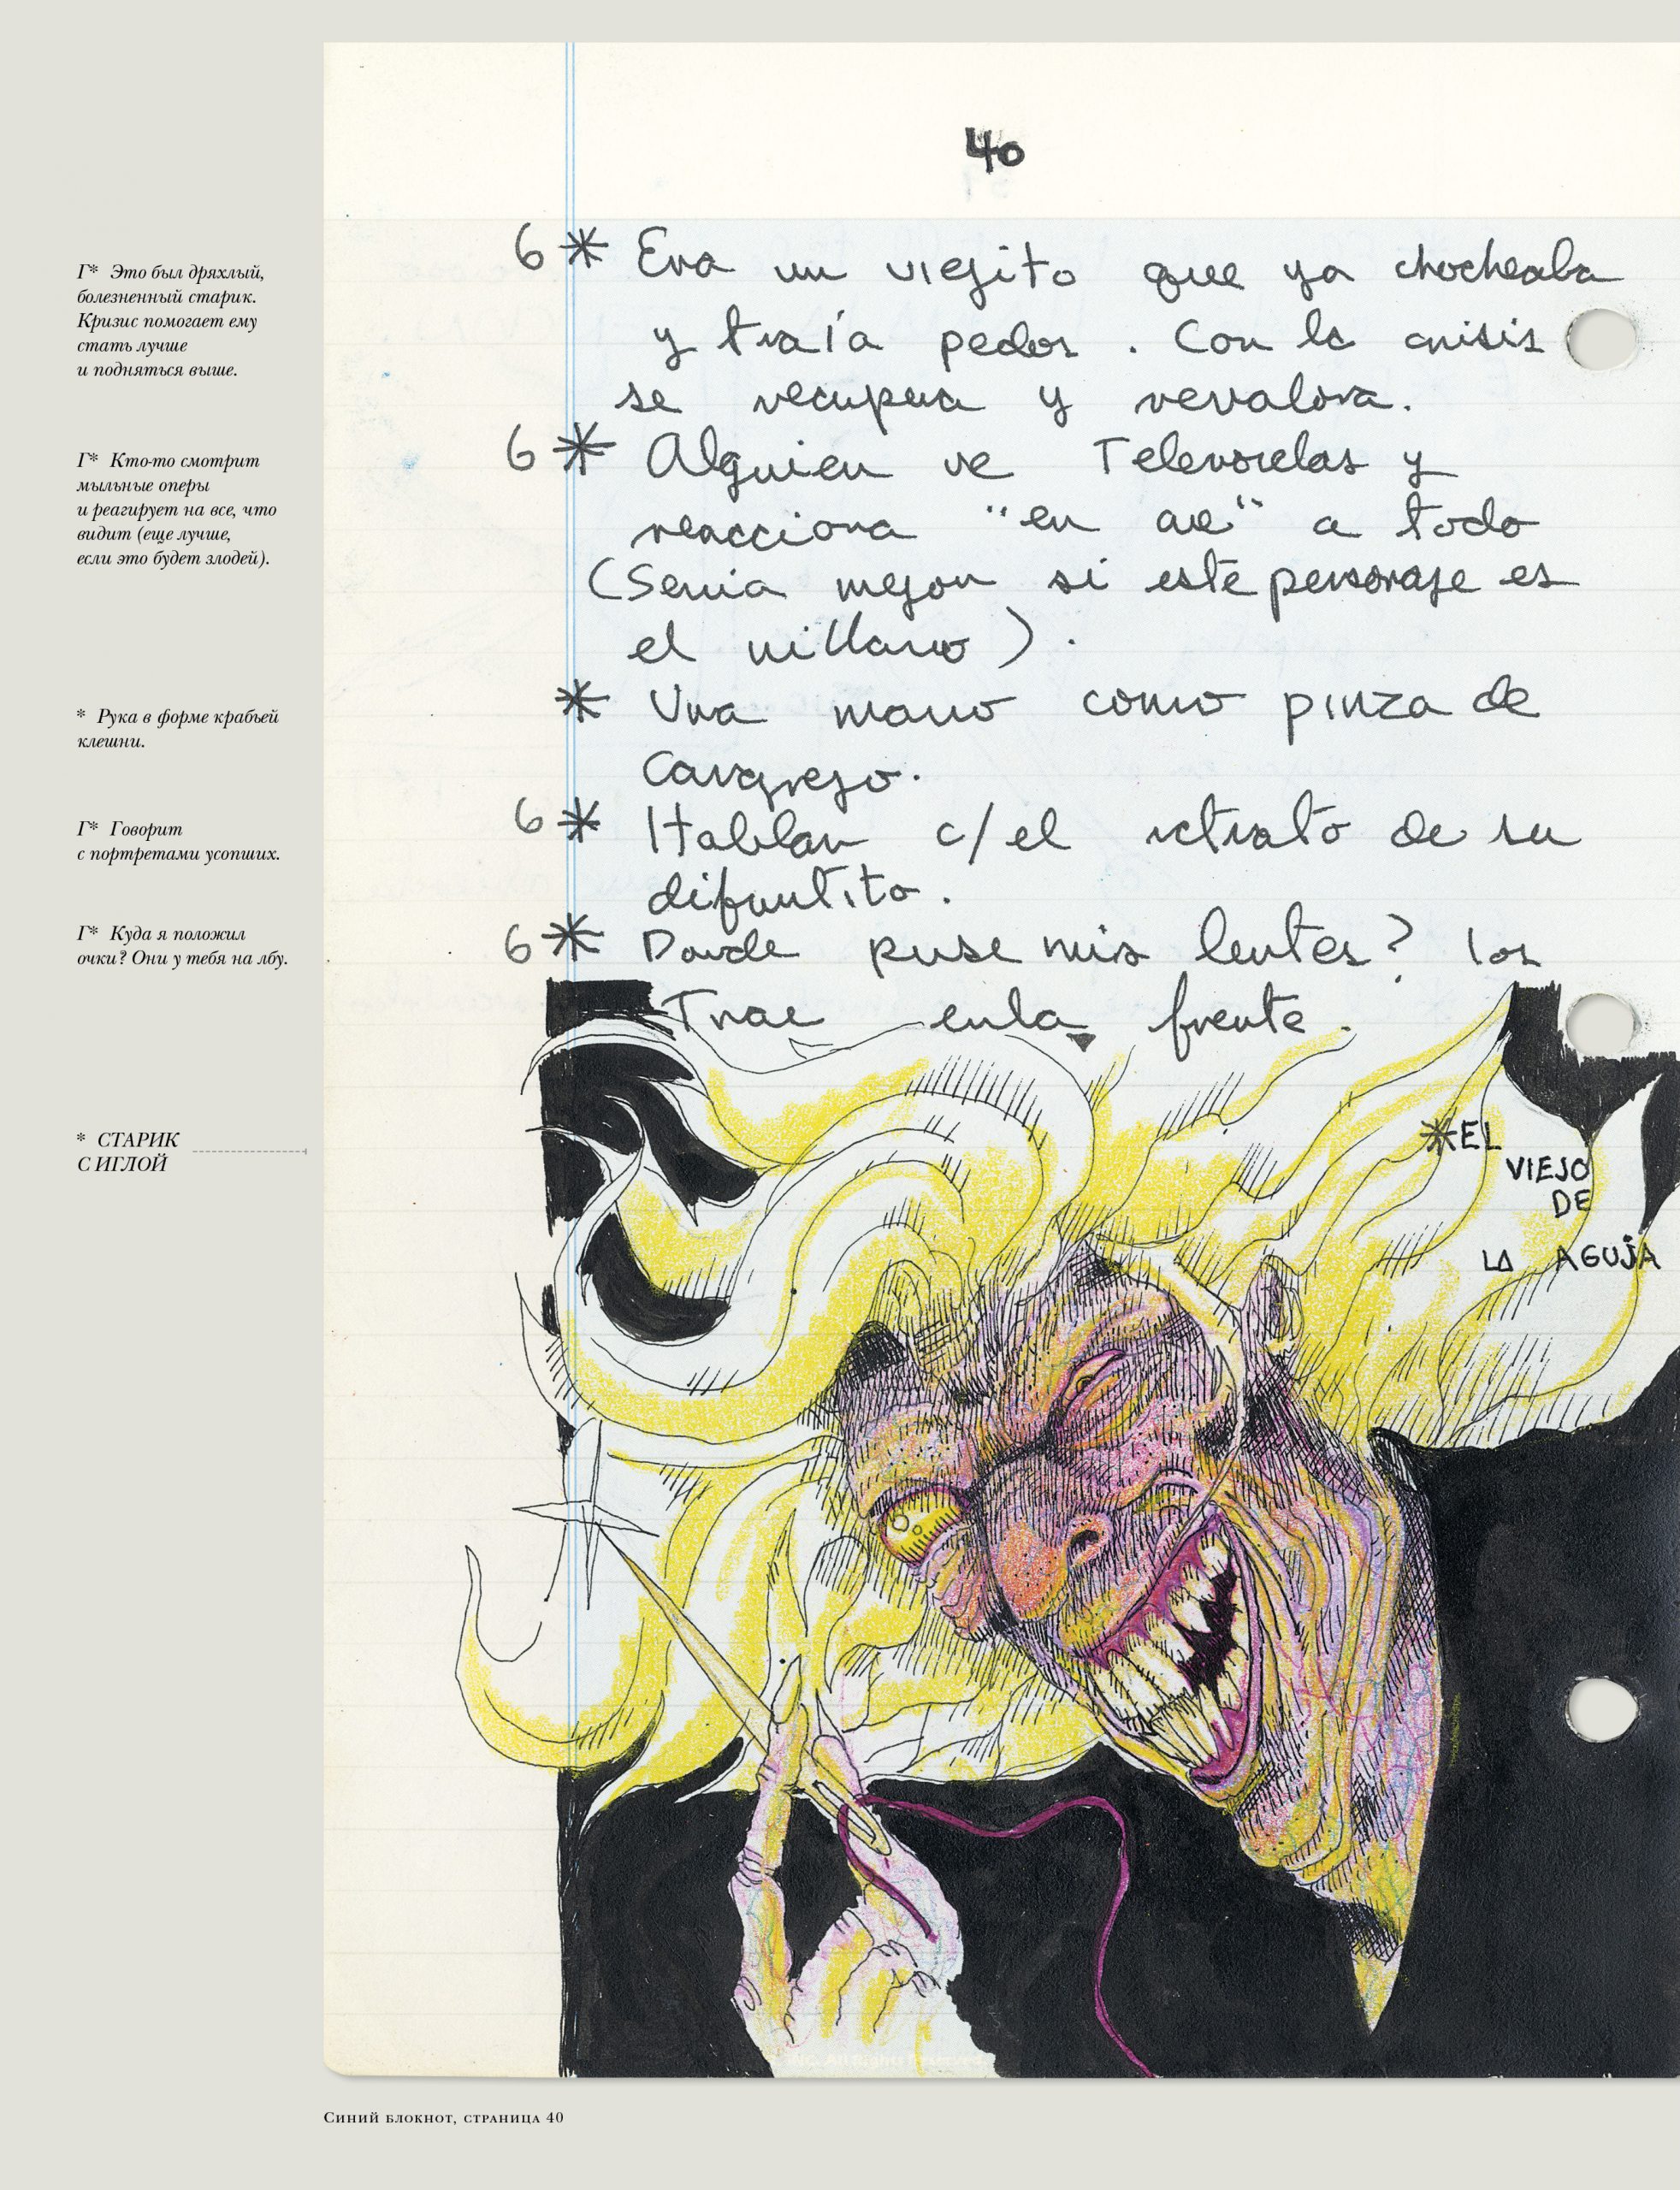 40
Г* Это был дряхлый,
болезненный старик.
Кризис помогает ему
стать лучше
и подняться выше.
Г* Кто-то смотрит
мыльные оперы
и реагирует на все, что
видит (еще лучше,
если это будет злодей).
* Рука в форме крабьей
клешни.
Г* Говорит
с портретами усопших.
Г* Куда я положил
очки? Они у тебя на лбу.
* СТАРИК
С ИГЛОЙ
6 * Era un viejito que ya chocheaba
y traía pedos . Con la crisis
se recupera y revalora.
6 * Alguien ve Telenovelas y
reacciona "en" a todo
(Seria mejor si este personaje es
el villano) .
* Una mano como pinza de
Cangrejo.
6 * Hablan c/el retrato de su
difuntito .
6 * Donde puse mis lentes? los
Trae en la frente .
* EL
VIEJO
DE
LA AGUJA
Синий блокнот, страница 40